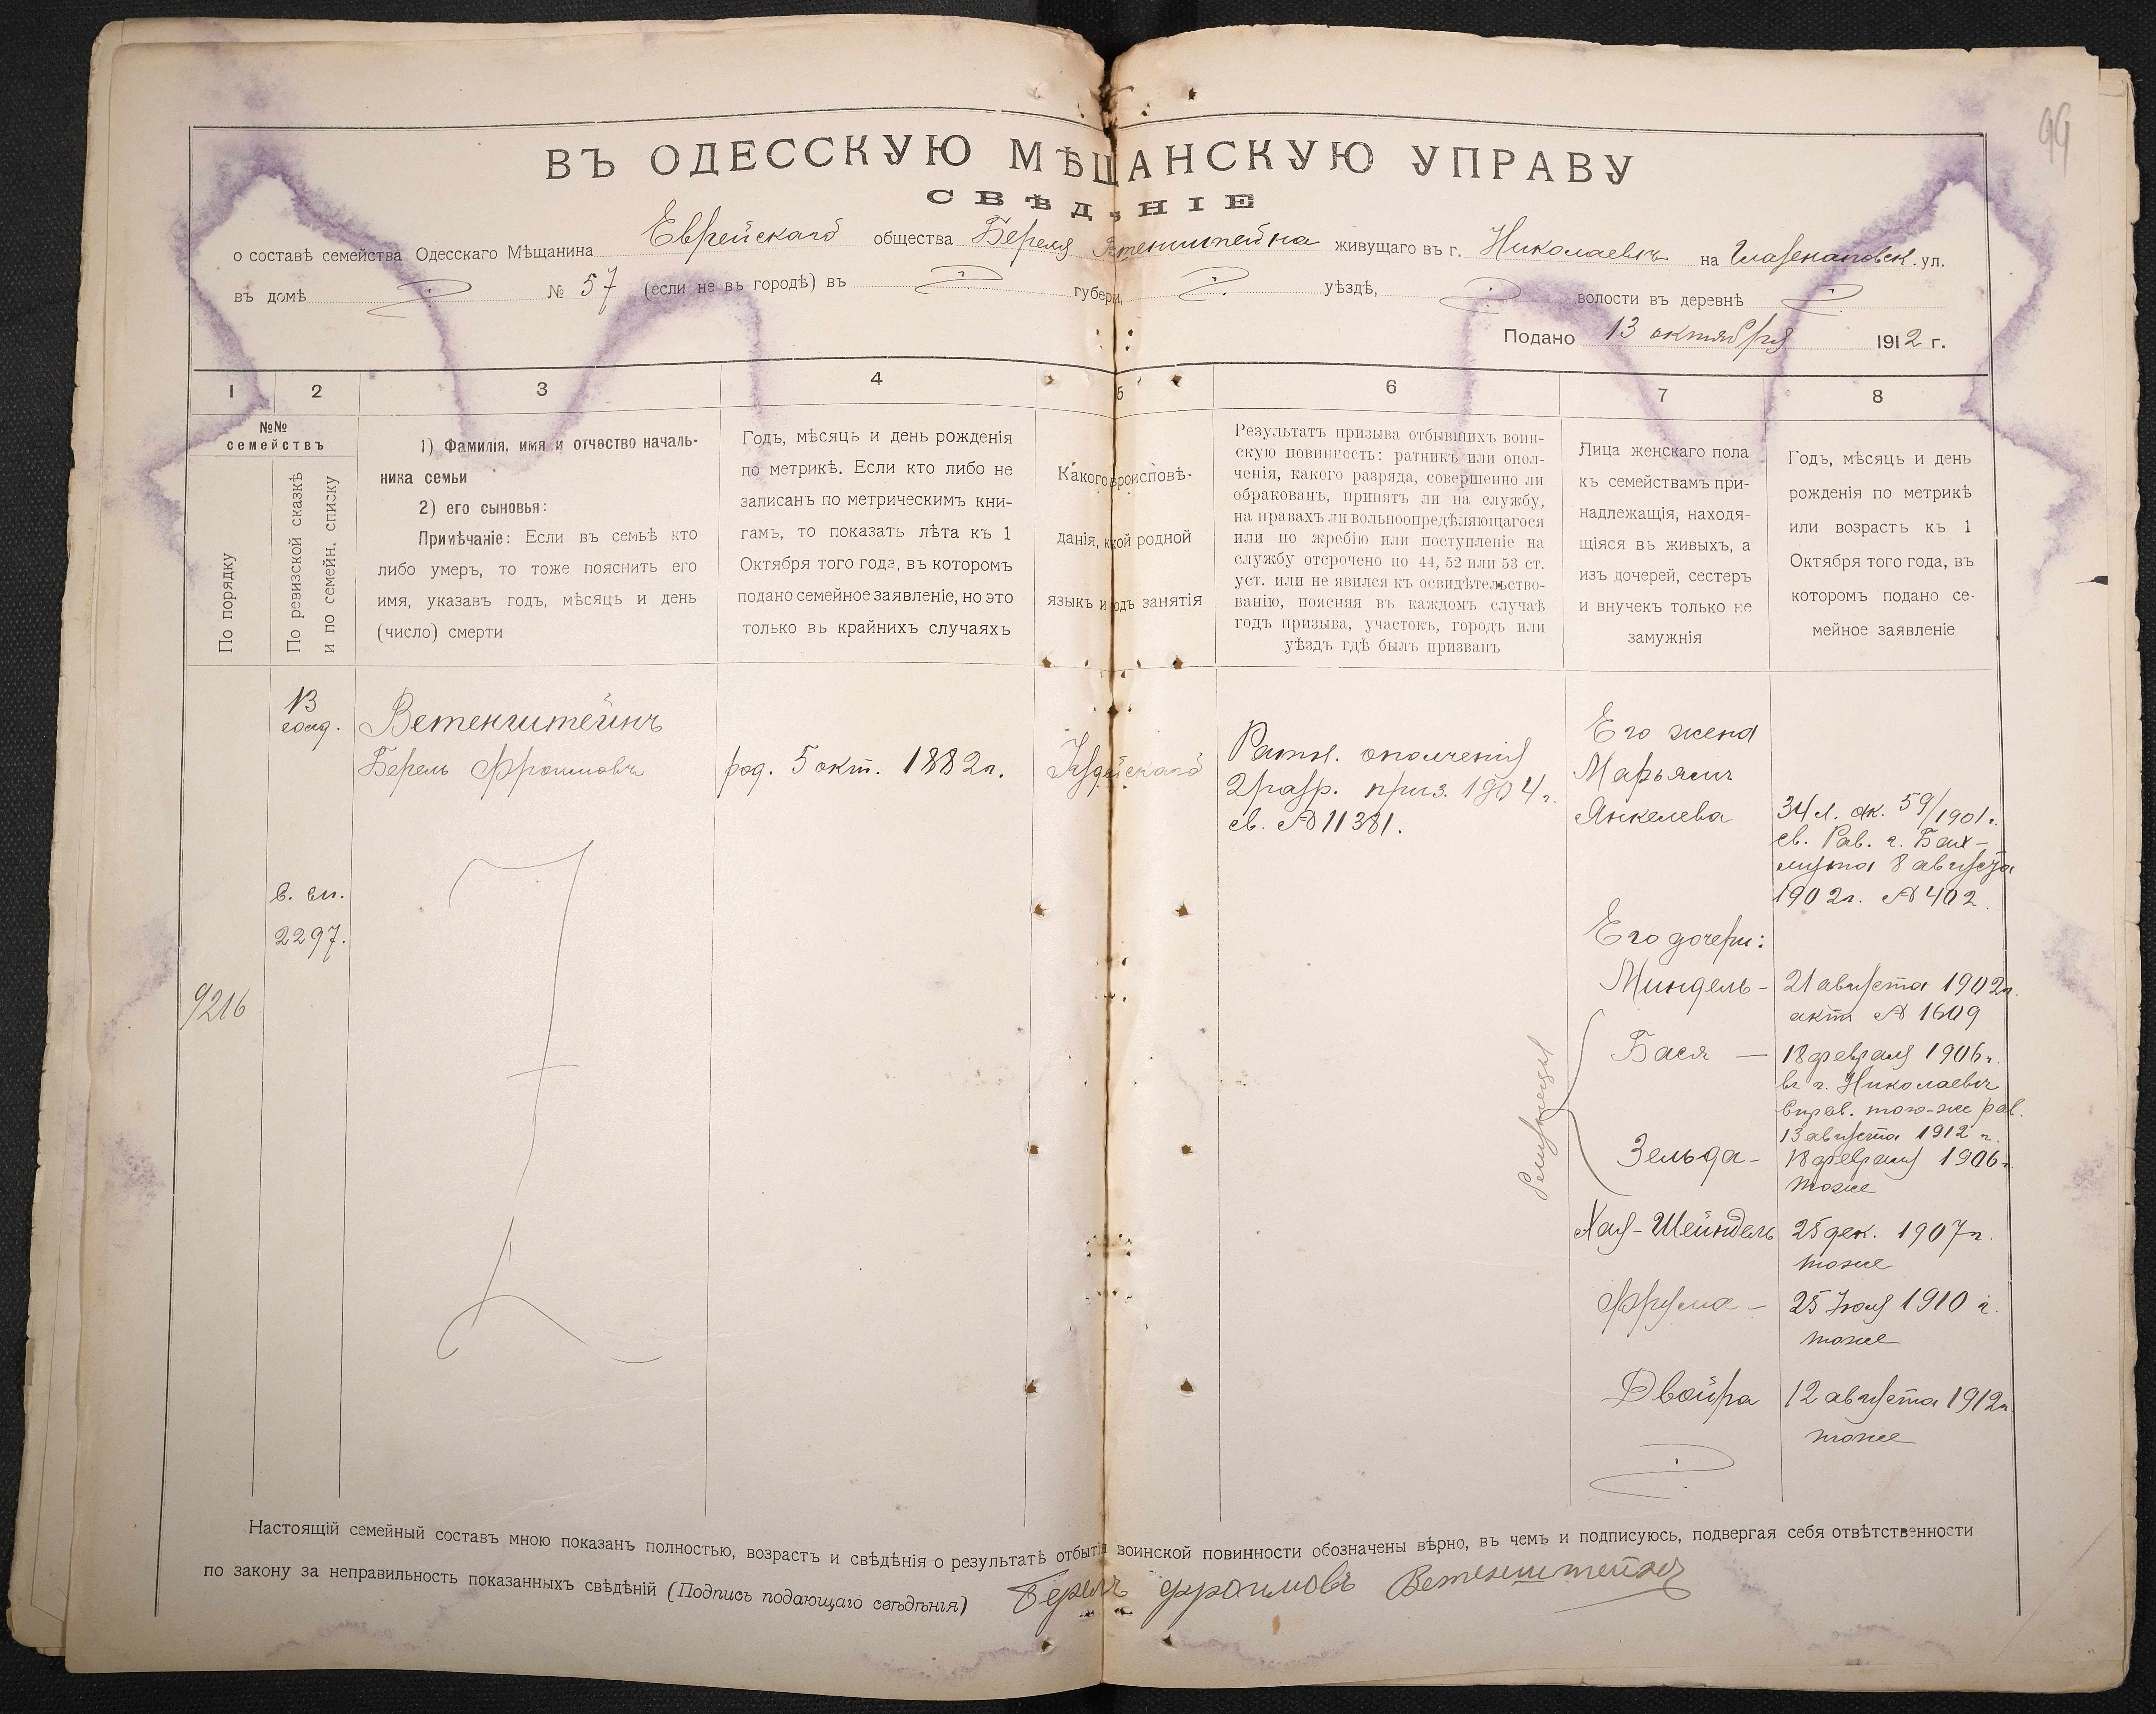 99
ВЪ ОДЕССКУЮ МѢЩАНСКУЮ УПРАВУ
СВѢДѢНІЕ
о составѣ семейства Одесскаго Мѣщанина Еврейскаго общества Береля Ветенштейна живущаго въ г. Николаевѣ на Глазенаповск. ул.
въ домѣ № 57 (если не въ городѣ) въ губерн, уѣздѣ, волости въ деревнѣ
Подано 13 октября 1912 г.
1 2 3 4 5 6 7 8
№№
семействъ
По порядку
По ревизской сказкѣ
и по семейн. списку
1) Фамилія, имя и отчество началь-
ника семьи
2) его сыновья:
Примѣчаніе: Если въ семьѣ кто
либо умеръ, то тоже пояснить его
имя, указавъ годъ, мѣсяцъ и день
(число) смерти
Годъ, мѣсяцъ и день рожденія
по метрикѣ. Если кто либо не
записанъ по метрическимъ кни-
гамъ, то показать лѣта къ 1
Октября того года, въ которомъ
подано семейное заявленіе, но это
только въ крайнихъ случаяхъ
Какого вроисповѣ-
данія, кой родной
языкъ и одъ занятія
Результатъ призыва отбывшихъ воин-
скую повинность: ратникъ или опол-
ченія, какого разряда, совершенно ли
обракованъ, принятъ ли на службу,
на правахъ ли вольноопредѣляющагося
или по жребію или поступленіе на
службу отсрочено по 44, 52 или 53 ст.
уст. или не явился къ освидѣтельство-
ванію, поясняя въ каждомъ случаѣ
годъ призыва, участокъ, городъ или
уѣздъ гдѣ былъ призванъ
Лица женскаго пола
къ семействамъ при-
надлежащія, находя-
щіяся въ живыхъ, а
изъ дочерей, сестеръ
и внучекъ только не
замужнія
Годъ, мѣсяцъ и день
рожденія по метрикѣ
или возрастъ къ 1
Октября того года, въ
которомъ подано се-
мейное заявленіе
9216
в. сп.
2297.
Ветенштейнъ
Берель Фроимовъ
род. 5 окт. 1882г.
Іудейскаго
Ратн. ополченія
2 разр. приз. 1904 г.
св. № 11381.
Его жена
Марьямъ
Янкелева
34 л. ак. 59/1901 г.
св. Рав. г. Бах-
мута 8 августа
1902г. № 402.
Его дочери:
Миндель - 21 августа 1902г.
актъ № 1609
Близнецы
Бася — 18 февраля 1906 г.
въ г. Николаевѣ
Справ. того-же рав.
13 августа 1912 г.
Зельда - 18 февраля 1906 г.
тоже
Хая-Шейндель 25 дек. 1907 г.
тоже
Фрума - 25 Іюля 1910 г.
тоже
Двойра 12 августа 1912г.
тоже
Настоящій семейный составъ мною показанъ полностью, возрастъ и свѣдѣнія о результатѣ отбытія воинской повинности обозначены вѣрно, въ чемъ и подписуюсь, подвергая себя отвѣтственности
по закону за неправильность показанныхъ свѣдѣній (Подпись подающаго свѣдѣнія) Берель Фроимовъ Ветенштейнъ